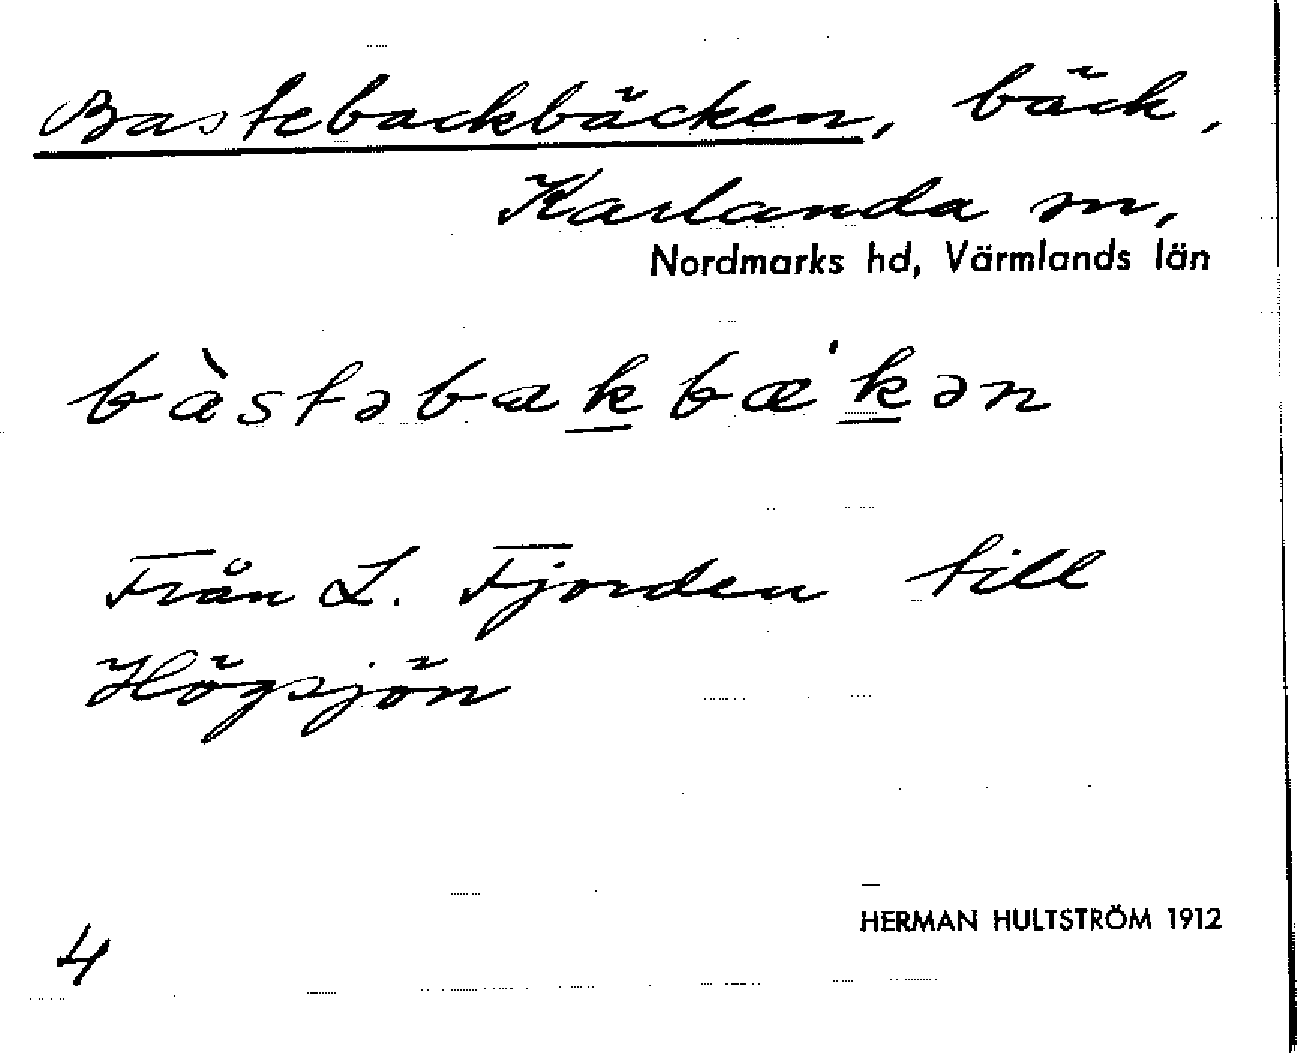 Bastebackbäcken, bäck,
Karlanda sn,
Nordmarks hd, Värmlands län
bàstəbakbæ'kən
Från L. Fjorden till
Högsjön
HERMAN HULTSTRÖM 1912
4